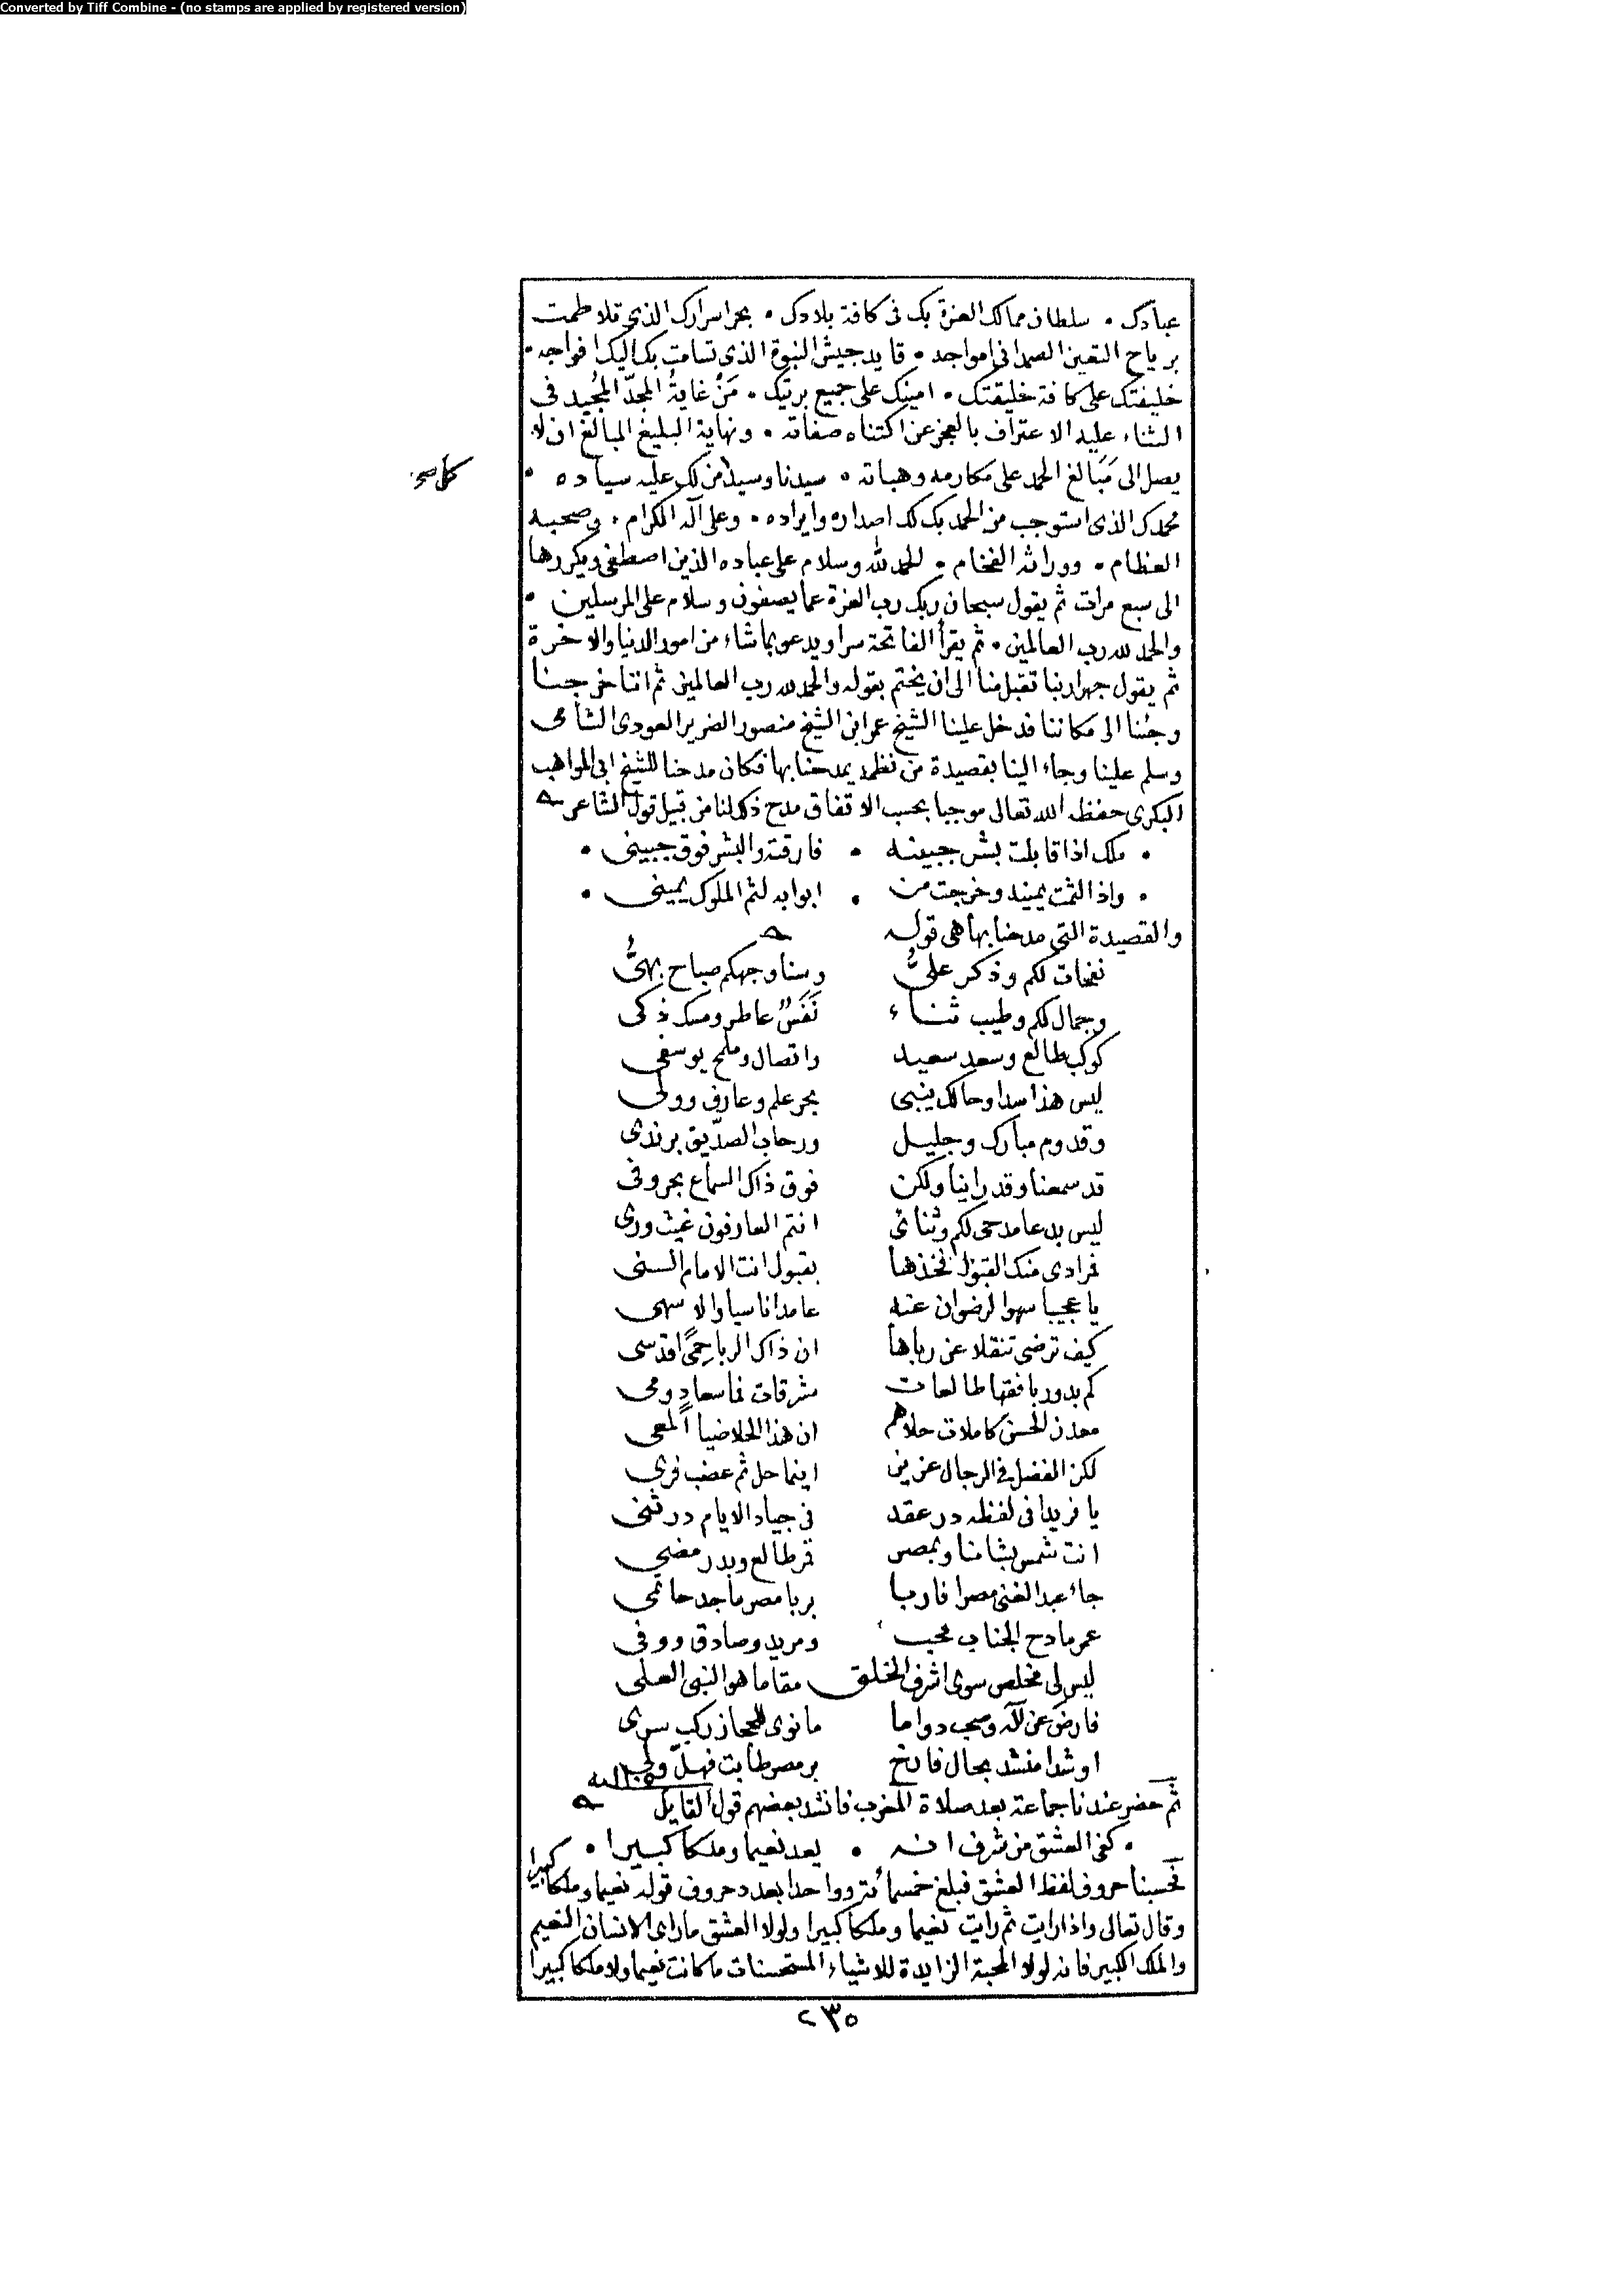 Converted by Tiff Combine - (no stamps are applied by registered version)
عبادك • سلطان ممالك العزة بك فى كافة بلادك • بحر اسرارك الذى تلاطمت
برياح التعين الصمدانى امواجه • قايد جيش النبوة الذى تسامت بك اليك افواجه •
خليفتك على كافة خليقتك • امينك على جميع بريتك • مَنْ غايةُ المجدّ المُجيد فى
الثناء عليه الاعتراف بالعجز عن اكتناه صفاته • ونهاية البليغ المبالغ ان لا
يصل الى مَبَالغ الحمد على مكارمه وهباته • سيدنا وسيد من لك عليه سياده •
كل صح
محمدك الذى استوجب من الحمد بك لك اصداره وايراده • وعلى آله الكرام • وصحبه
العظام • ووراثه الفخام • الحمد لله وسلام على عباده الذين اصطفى ويكررها
الى سبع مرات ثم يقول سبحان ربك رب العزة عما يصفون وسلام على المرسلين •
والحمد لله رب العالمين • ثم يقرأ الفاتحة سرا ويدعو بما شاء من امور الدنيا والاخرة
ثم يقول جهرا ربنا تقبل منا الى ان يختم بقوله والحمد لله رب العالمين ثم اننا خرجنا
وجئنا الى مكاننا فدخل علينا الشيخ عمر ابن الشيخ منصور الضرير العودى الشامى
وسلم علينا وجاء الينا بقصيدة من نظمه يمدحنا بها فكان مدحنا للشيخ ابى المواهب
البكرى حفظه الله تعالى موجبا بحسب الاتفاق مدح ذلك لنا من قبيل قول الشاعر
• ملك اذا قابلت بشر جبينه • فارقته والبشر فوق جبينى •
• واذا لثمت يمينه وخرجت من • ابوابه لثم الملوك يمينى •
والقصيدة التى مدحنا بها هى قوله
نفحات لكم وذكر علىُّ وسنا وجهكم صباح بهىُّ
وجمال لكم وطيب ثناء نَفَسٌ عاطر ومسك ذكى
كوكب طالع وسعد سعيد واتصال وملمح يوسفى
ليس هذا سدا وحالك ينبى بحر علم وعارف وولى
وقدوم مبارك وجليل ورحاب الصدّيق بر ندى
قد سمعنا وقد راينا ولكن فوق ذاك السماع بحر وفى
ليس بدعا مدحى لكم وثنائى انتم العارفون غيث ورى
فمرادى منك القبول فخذها بقبول انت الامام السنى
يا عجيبا سهوا لرضوان عنه عامدا ناسيا والا سهى
كيف ترضى تنقلا عن رباها ان ذاك الربا حِمًى اقدسى
كم بدور بافقها طالعات مشرقات فما سعاد ومى
معدن الحسن كاملات حلاهم ان هذا الحلا ضيا المعى
لكن الفضل فى الرجال عزيز اينما حل ثم عضب فرى
يا فريدا فى لفظه در عقد فى جياد الايام در ثمى
انت شمس بشامنا وبمصر قمر طالع وبدر مضى
جاء عبد الغنى مصرا فاربا بربا مصر ماجد حاتمى
عمر مادح الجناب محب ومريد وصادق ووفى
ليس لى مخلص سوى اشرف الخلق مقاما هو النبى العلى
فارض عن آله وصحب دواما ما نوى للحجاز ركب سرى
او شدا منشد بحال فارخ بر مصر طابت فهلّ ولى
ثم حضر عندنا جماعة بعد صلاة المغرب فانشد بعضهم قول القايل
• كفى العشق من شرف انه • يعد نعيما وملكا كبيرا •
فحسبنا حروف لفظ العشق فبلغ خمسمائة وواحدا بعدد حروف قوله نعيما وملكا كبيرا
وقال تعالى واذا رايت ثم رايت نعيما وملكا كبيرا ولولا العشق ما راى الانسان النعيم
والملك الكبير فانه لولا المحبة الزايدة للاشياء المستحسنات ما كانت نعيما ولا ملكا كبيرا
٢٣٥